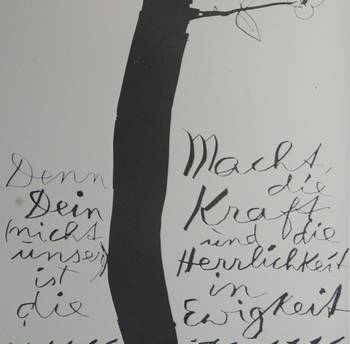 Denn
Dein
(nicht
unser)
ist
die
Macht,
die
Kraft
und die
Herrlichkeit
in
Ewigkeit